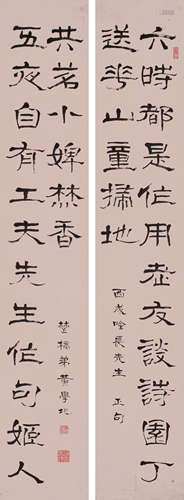 六時都是作用老友談詩園丁
送華山童掃地
吟長先生 正句
五夜自有工夫先生作句姬人
共茗小婢焚香
楚橋弟黃學圯